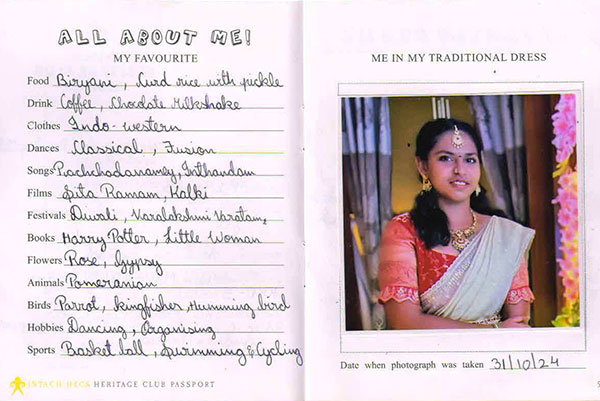 ALL ABOUT ME!
MY FAVOURITE
Food Biryani, Curd rice with pickle
Drink Coffee, Chocolate Milkshake
Clothes Indo-western
Dances Classical, Fusion
Songs Inthandam
Films Sita Ramam, Kalki
Festivals Diwali, Varalakshmi Varatam,
Books Harry Potter, Little Woman
Flowers Rose, Gypsy
Animals Pomeranian
Birds Parrot, kingfisher, Humming bird
Hobbies Dancing, Organising
Sports Basket ball, Swimming & Cycling
INTACH HECS HERITAGE CLUB PASSPORT
ME IN MY TRADITIONAL DRESS
Date when photograph was taken 31/10/24